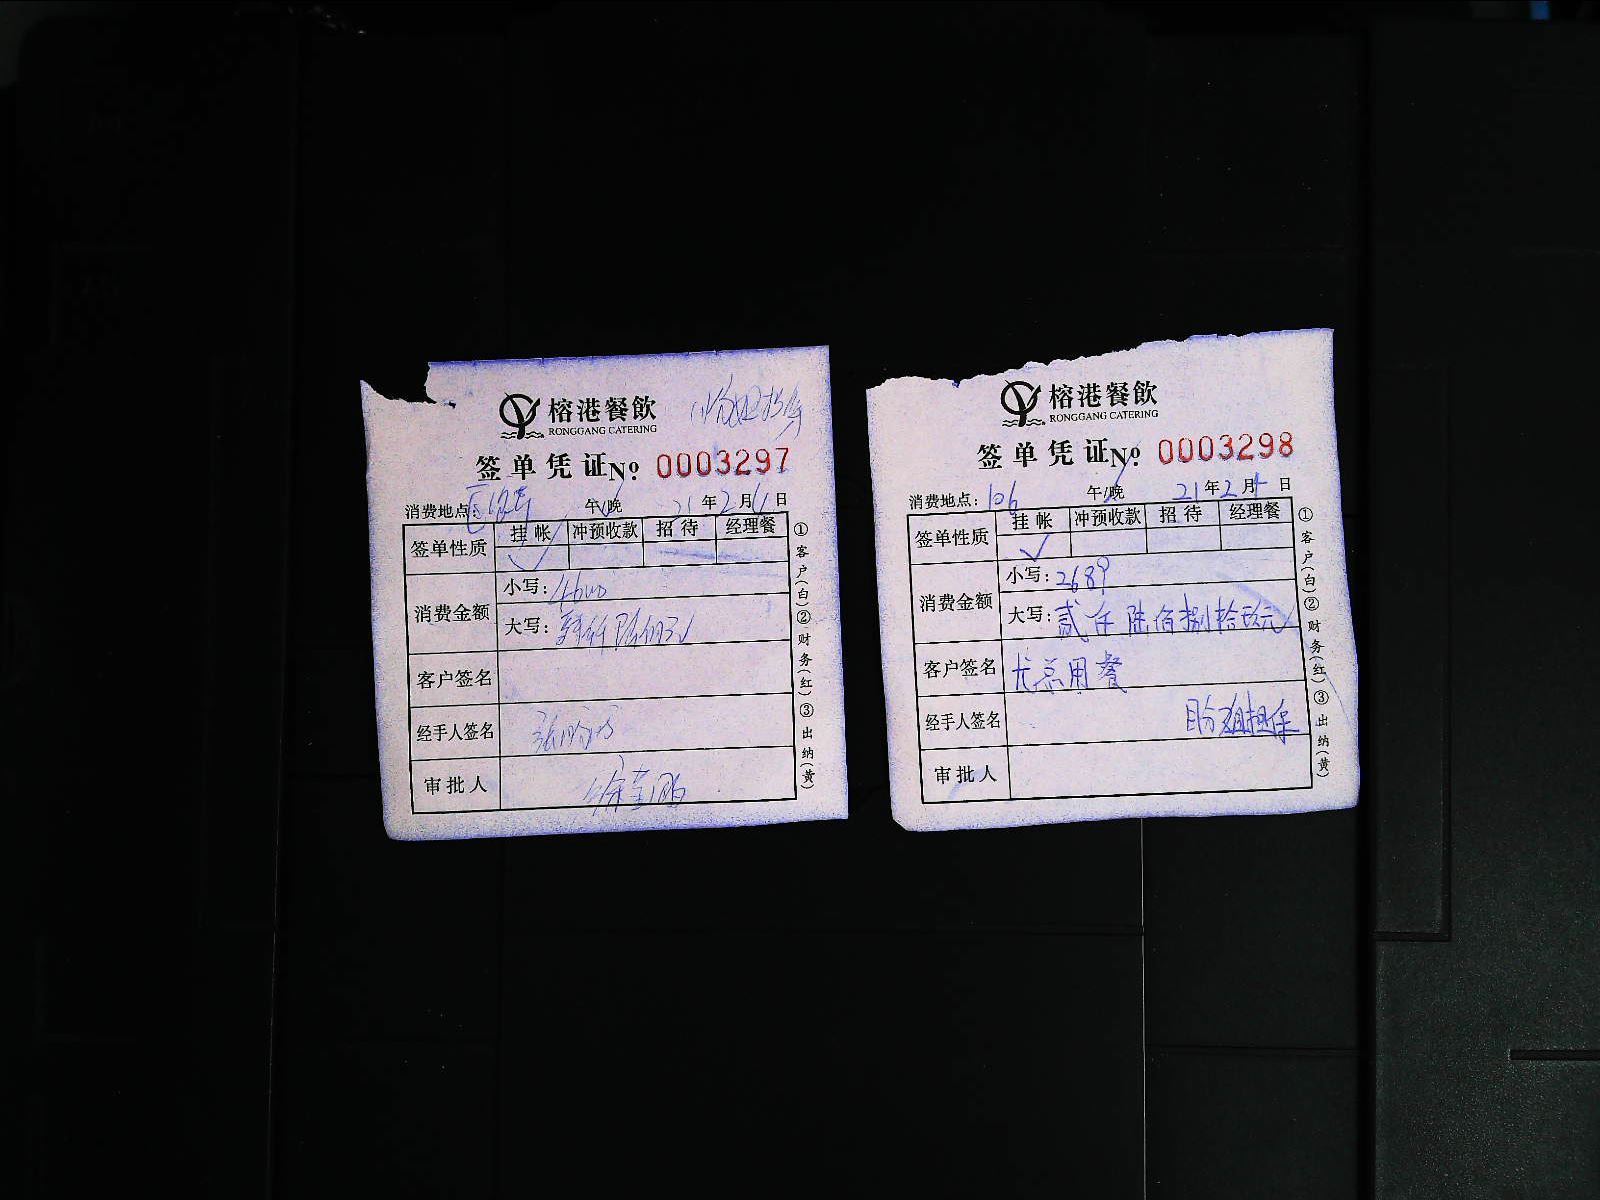 榕港餐飲
RONGGANG CATERING
签单凭证No. 0003297
消费地点: 午/晚 21年2月4日
签单性质 挂帐 冲预收款 招待 经理餐
✓
消费金额
小写: 4600
大写: 肆仟陆佰元
客户签名
经手人签名
审批人
①客户(白)②财务(红)③出纳(黄)
榕港餐飲
RONGGANG CATERING
签单凭证No. 0003298
消费地点: 106 午/晚 21年2月4日
签单性质 挂帐 冲预收款 招待 经理餐
✓
消费金额
小写: 2689
大写: 贰仟陆佰捌拾玖元
客户签名 尤总用餐
经手人签名 盼姐担保
审批人
①客户(白)②财务(红)③出纳(黄)